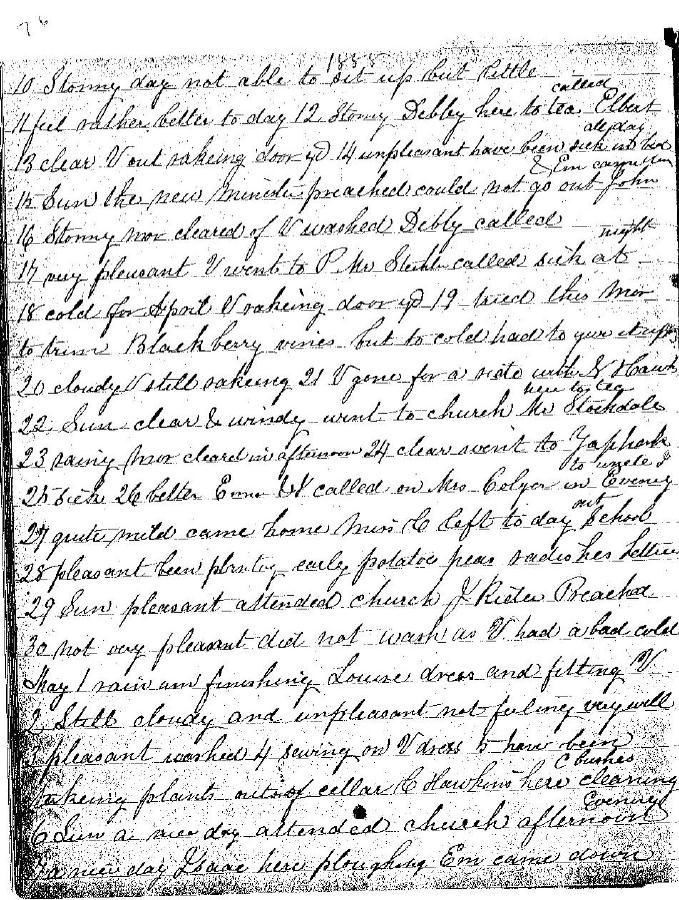 76
1888
10 Stormy day not able to sit up but little
called
11 feel rather better to day 12 Stormy Debby here to tea Elbert
all day
13 clear V out rakeing door yd 14 unpleasant have been sick in bed
& Em came
15 Sun the new Minister preached could not go out John
16 Stormy mor cleared of V washed Debby called
night
17 very pleasant V went to P Mr called sick at
18 cold for April V rakeing door yd 19 tried this mor
to trim Blackberry vines but to cold had to give it up
20 cloudy V still rakeing 21 V gone for a ride with N Hawk
here to tea
22 Sun clear & windy went to church Mr Stockdale
23 rainy mor cleard in afternoon 24 clear went to Yaphank
to uncle J
25 sick 26 better Em & I called on Mrs Colyer in Evening
out
27 quite mild came home Miss C left to day School
28 pleasant been planting early potatoe peas radishes lettuce
29 Sun pleasant attended church J Rider Preached
30 not very pleasant did not wash as V had a bad cold
May 1 rain am finishing Louise dress and fitting V
2 Still cloudy and unpleasant not feeling very well
3 pleasant washed 4 sewing on V dress 5 have been
C bushes
takeing plants out of cellar C Hawkins here cleaning
Evening
6 Sun a nice day attended church afternoon
a nice day Isaac here ploughing Em came down